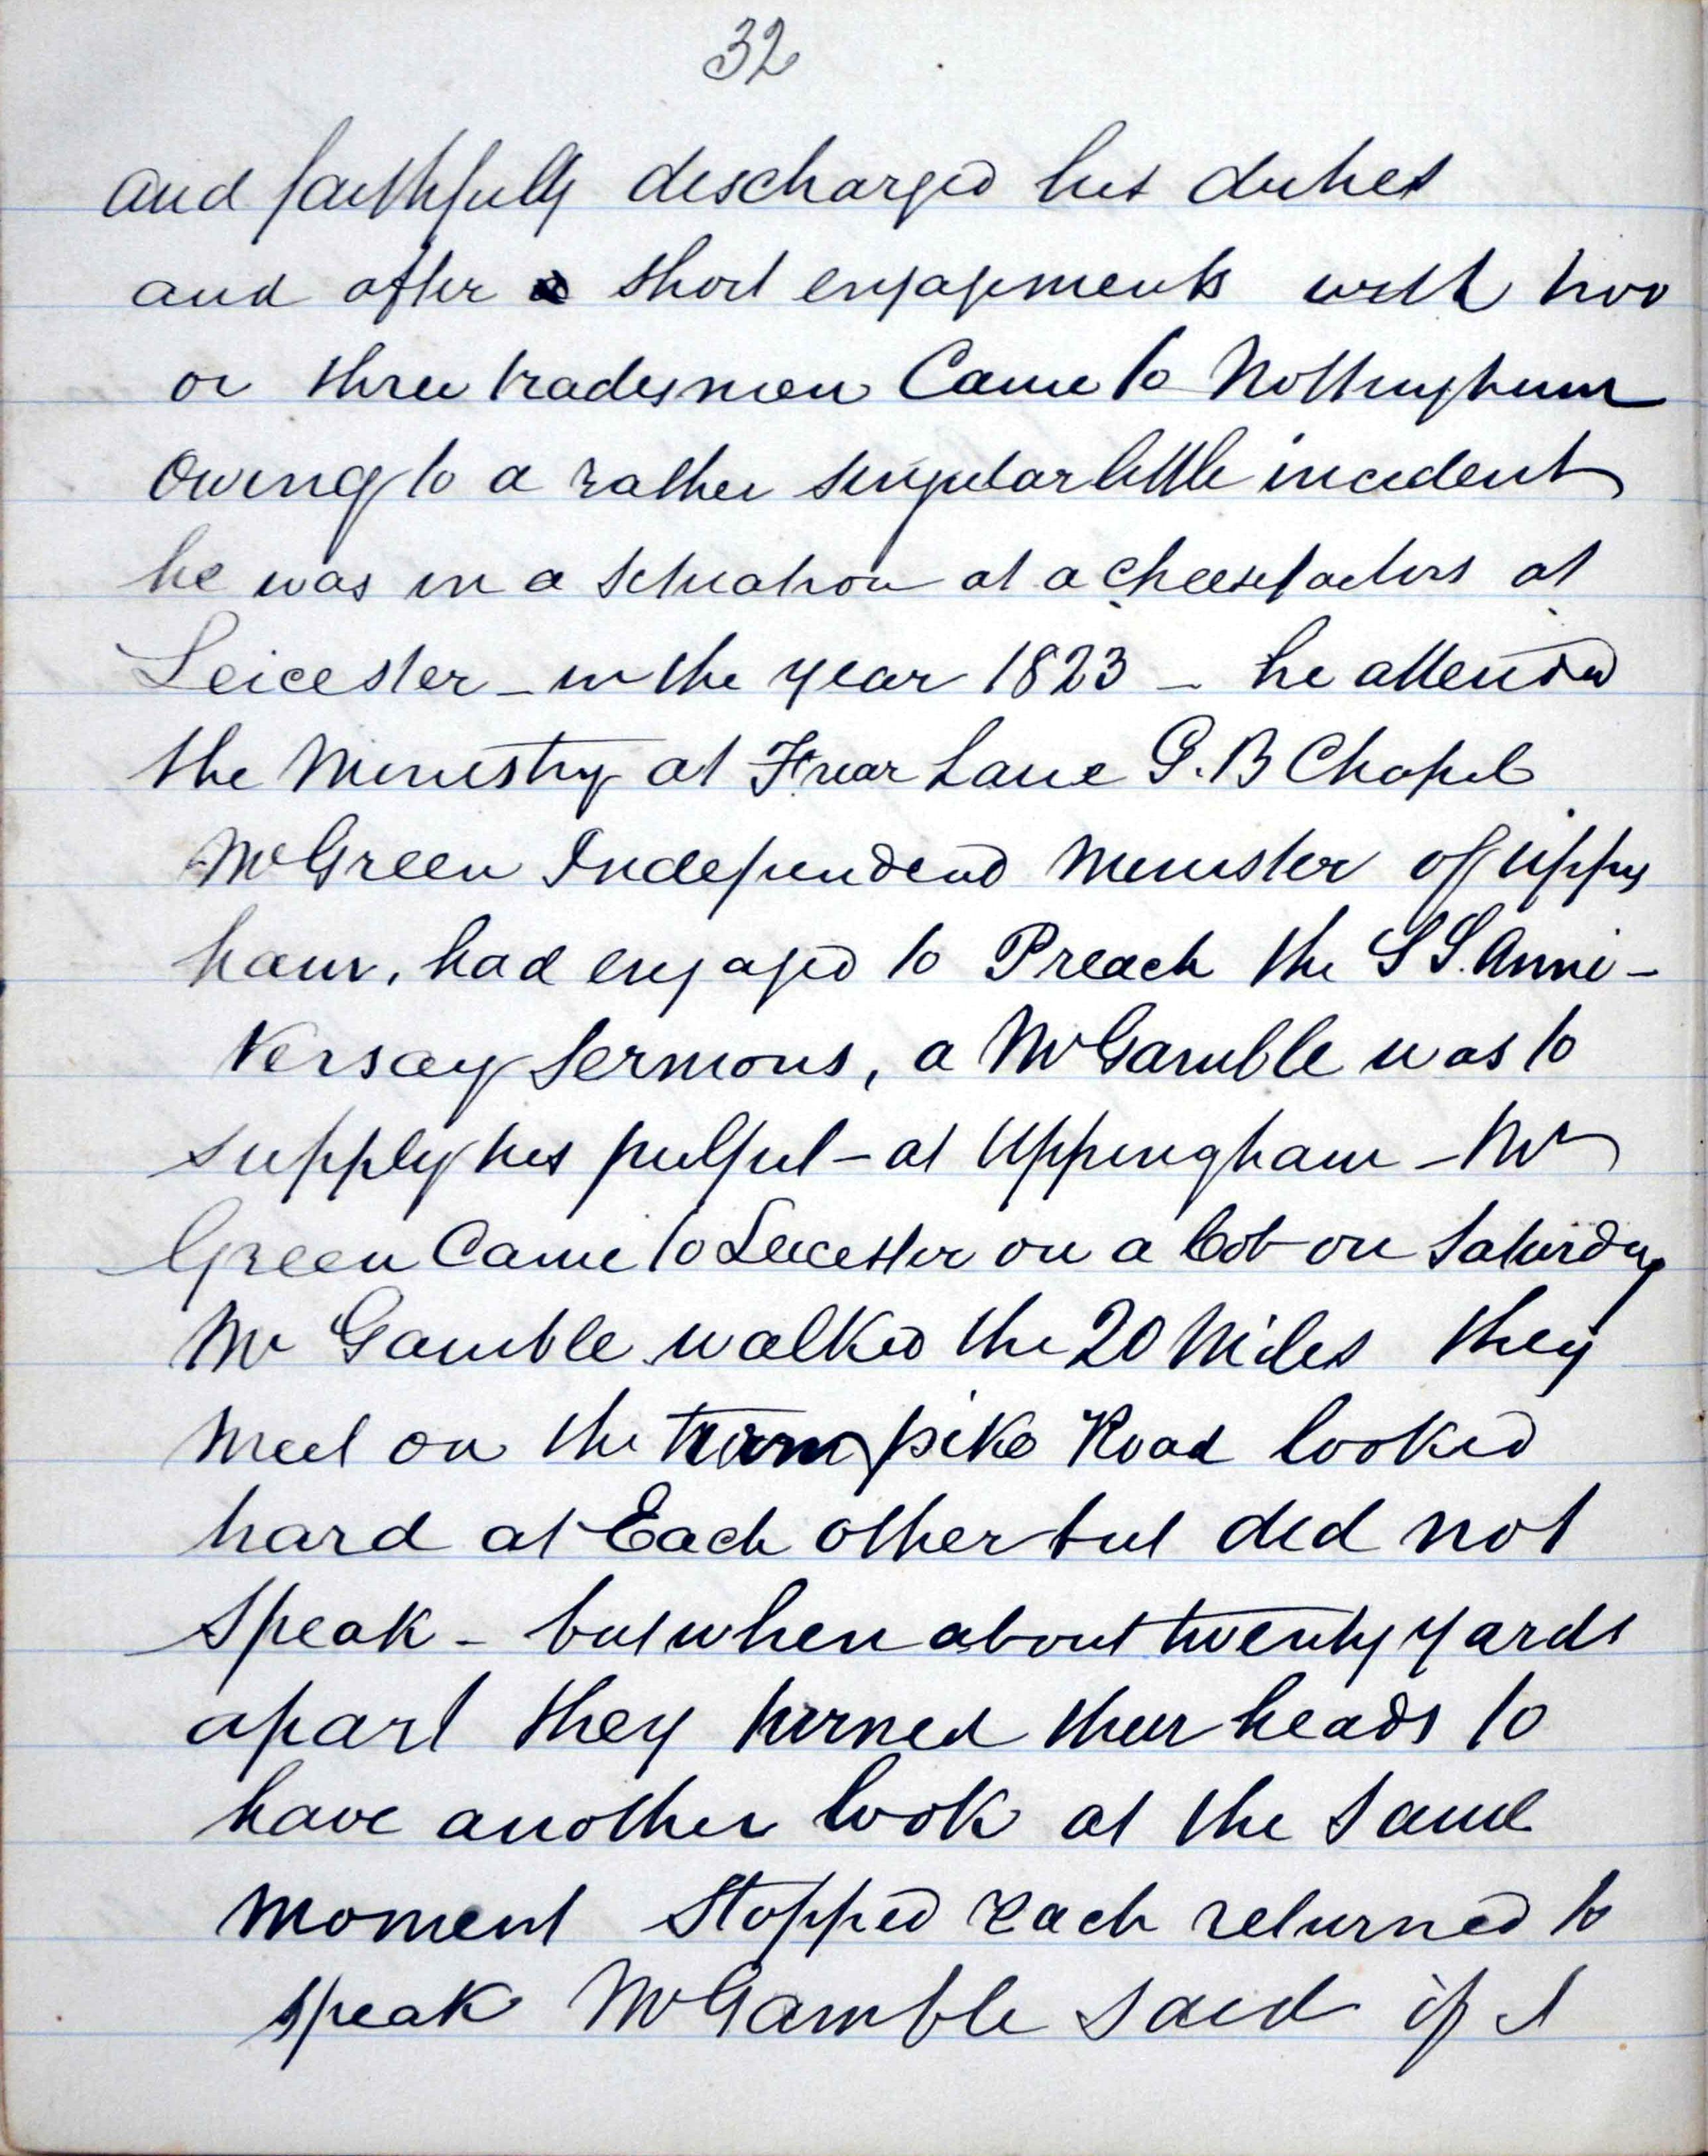 32
and faithfully discharged his duties
and after short engagements with two
or three tradesmen Came to Nottingham
Owing to a rather singular little incident
he was in a Situation at a Cheesefactors at
Leicester - in the year 1823 - he attended
the Ministry at Friar Lane G.B Chapel
Mr Green Independend Minister of upping
ham, had engaged to Preach the S S. Anni-
versay Sermons, a Mr Gamble was to
supply his pulpit - at Uppingham - Mr
Green Came to Leicester on a Cob on Saturday
Mr Gamble walked the 20 Miles they
meet on the turn pike Road looked
hard at Each other but did not
Speak - but when about twenty yards
apart they turned their heads to
have another look at the same
moment Stopped each returned to
speak Mr Gamble said if I